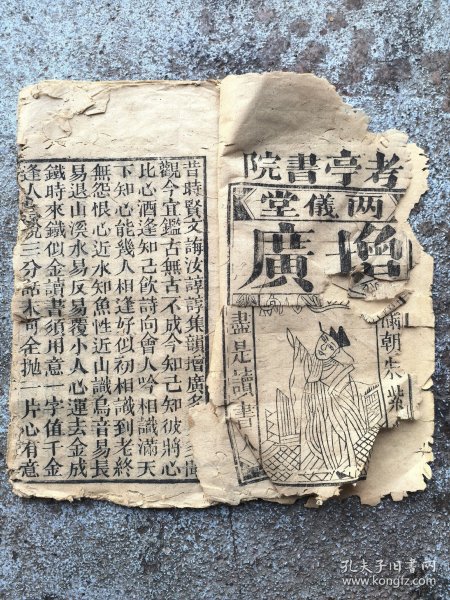 考亭書院
两儀堂
增廣
滿朝朱紫
盡是讀書
昔時賢文誨汝諄諄集韻增廣多
觀今宜鑑古無古不成今知己知彼將心
比心酒逢知己飲詩向會人吟相識滿天
下知心能幾人相逢好似初相識到老終
無怨恨心近水知魚性近山識鳥音易長
易退山溪水易反易覆小人心運去金成
鐵時來鐵似金讀書須用意一字值千金
逢人說三分話未可全抛一片心有意
孔夫子旧书网
www.kongfz.com